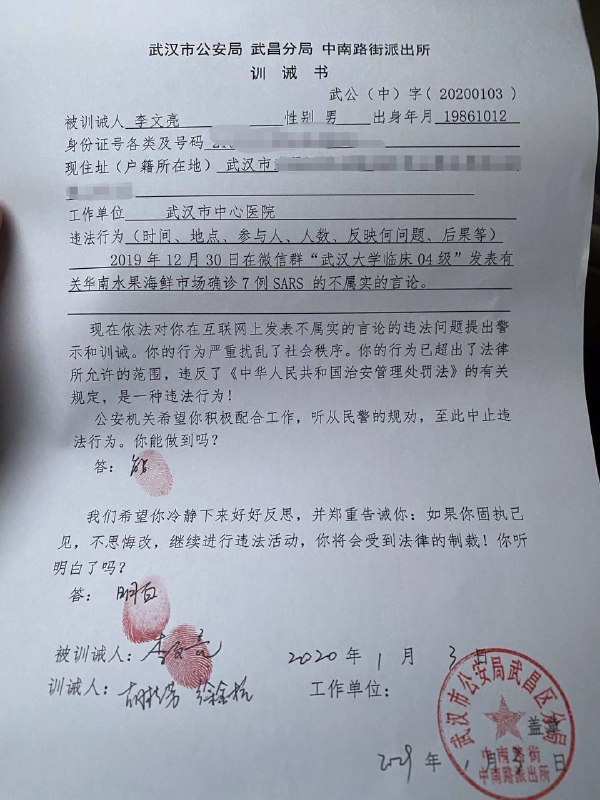 武汉市公安局 武昌分局 中南路街派出所
训 诫 书
武公（中）字（20200103）
被训诫人 李文亮 性别 男 出身年月 19861012
身份证号各类及号码
现住址（户籍所在地） 武汉市
工作单位 武汉市中心医院
违法行为（时间、地点、参与人、人数、反映何问题、后果等）
2019年12月30日在微信群“武汉大学临床04级”发表有
关华南水果海鲜市场确诊7例SARS的不属实的言论。
现在依法对你在互联网上发表不属实的言论的违法问题提出警
示和训诫。你的行为严重扰乱了社会秩序。你的行为已超出了法律
所允许的范围，违反了《中华人民共和国治安管理处罚法》的有关
规定，是一种违法行为！
公安机关希望你积极配合工作，听从民警的规劝，至此中止违
法行为。你能做到吗？
答：能
我们希望你冷静下来好好反思，并郑重告诫你：如果你固执己
见，不思悔改，继续进行违法活动，你将会受到法律的制裁！你听
明白了吗？
答：明白
被训诫人：李文亮 2020年1月3日
训诫人： 工作单位：
武汉市公安局武昌区分局
盖章
中南路街
中南路派出所
年1月3日